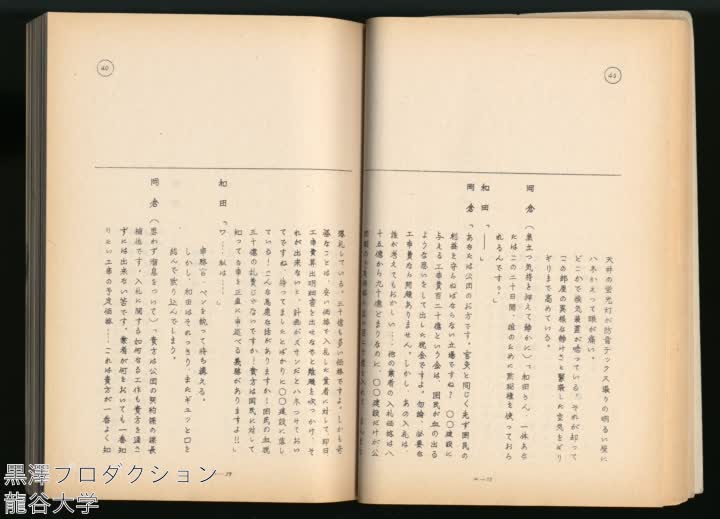 44
天井の蛍光灯が防音テックス張りの明るい壁に
ハネかえって眼が痛い。
どこかで換気装置が唸っている。それが却って
この部屋の異様な静けさと緊張した空気をギリ
ギリまで高めている。
岡倉（泉立つ気持を抑えて静かに）「和田さん、一体あな
たはこの二十日間、誰のために黙秘権を使っておら
れるんですっ。」
和田「――」
岡倉「あなたは公団のお方です。官吏と同じく先ず国民の
利益を守らねばならない立場ですね？〇〇建設に
与える工事費百二十億という金は、国民が血の出る
ような思いをして出した税金ですよ。勿論、必要な
工事費なら問題ありません。しかし、あの入札は、
誰が考えてもおかしい…他の業者の入札価格は八
十五億から九十億どまりなのに、〇〇建設だけが公
40
落札している。三十億も多い価格ですよ。しかも奇
怪なことは、安い価格で入札した業者に対して、即日
工事費算出明細書を出せなどと難題を吹っかけ、そ
れが出来ないと、計画がズサンだとハネつけておい
てですね、待ってましたとばかりに〇〇建設に落し
ている！こんな馬鹿な話がありますか！国民の血税
三十億の乱費じゃないですか！貴方は国民に対して
知ってる事を正直に申述べる義務がありますよ！！」
和田「ワ……私は……」
事務官、ペンを執って待ち構える。
しかし、和田はそれっきり、またギュッと口を
結んで黙り込んでしまう。
岡倉（思わず溜息をついて）「貴方は公団の契約課の課長
補佐です。入札に関する如何なる工作も貴方を通さ
ずには出来ない筈です。業者が何をおいても一番知
りたい工事の予定価格……これは貴方が一番よく知
黒澤プロダクション
龍谷大学